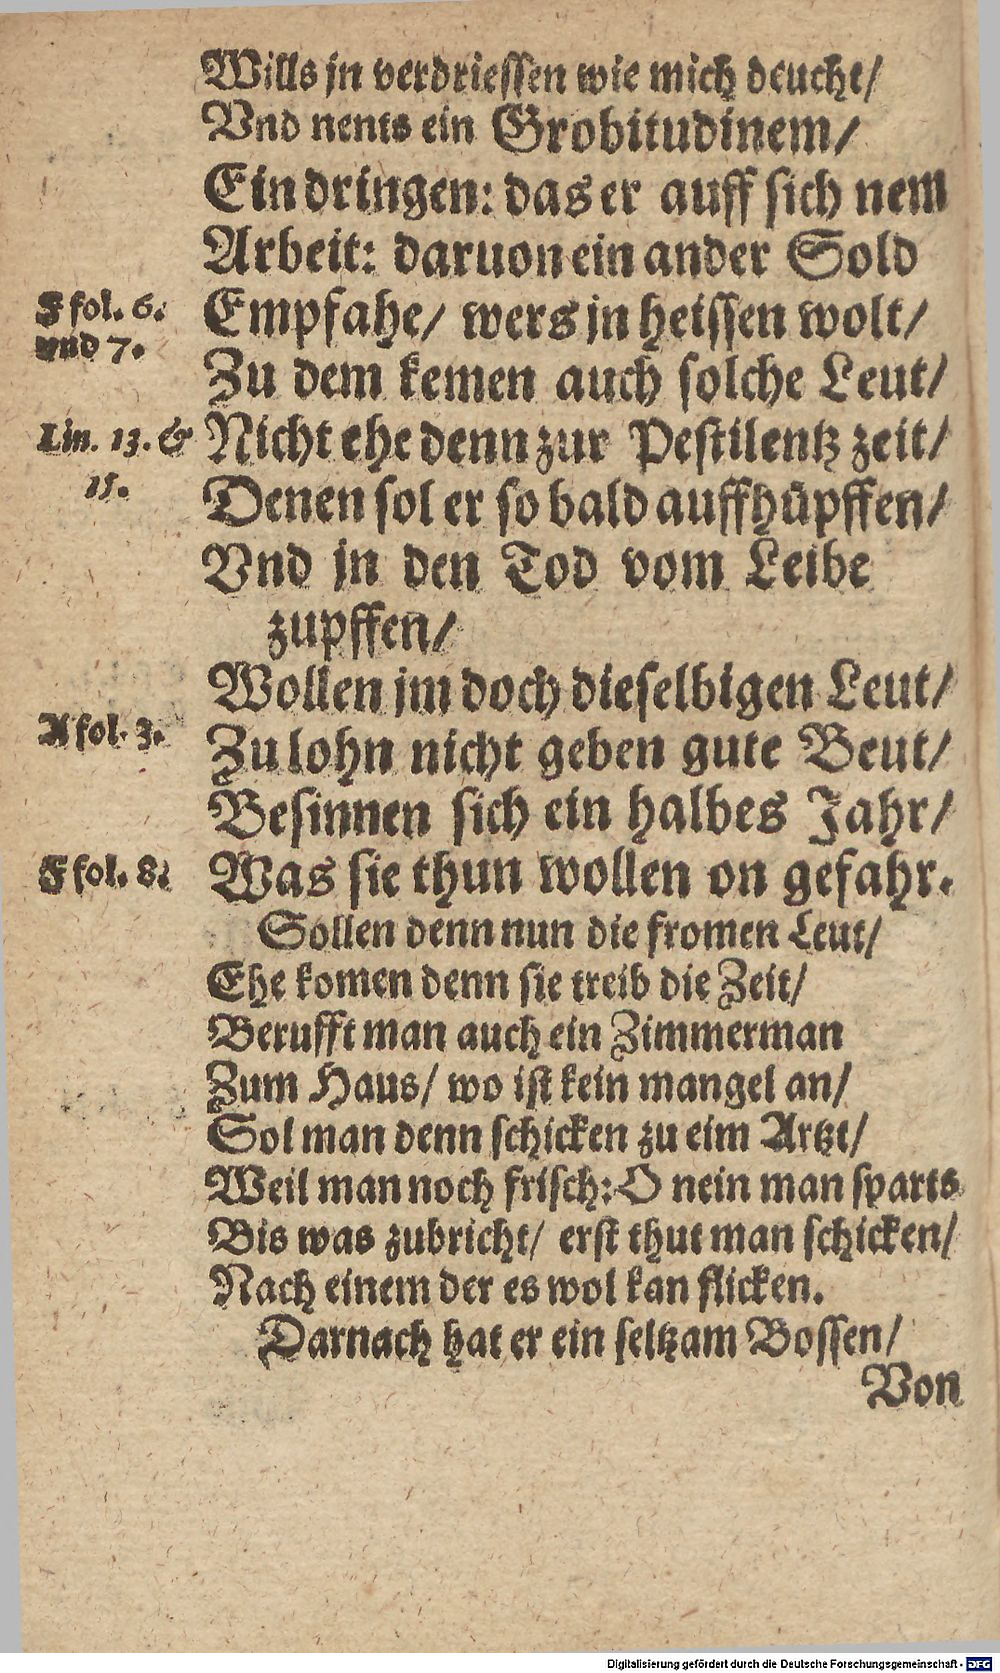 Wills jn verdriessen wie mich deucht/
Vnd nents ein Grobitudinem/
Eindringen: das er auff sich nem
Arbeit: daruon ein ander Sold
F fol. 6.
vnd 7.
Empfahe/ wers jn heissen wolt/
Zu dem kemen auch solche Leut/
Lin. 13. &
15.
Nicht ehe denn zur Pestilentz zeit/
Denen sol er so bald auffhüpffen/
Vnd jn den Tod vom Leibe
zupffen/
Wollen jm doch dieselbigen Leut/
A fol. 3.
Zu lohn nicht geben gute Beut/
Besinnen sich ein halbes Jahr/
F fol. 8.
Was sie thun wollen on gefahr.
Sollen denn nun die fromen Leut/
Ehe komen denn sie treib die Zeit/
Berufft man auch ein Zimmerman
Zum Haus/ wo ist kein mangel an/
Sol man denn schicken zu eim Artzt/
Weil man noch frisch: O nein man sparts
Bis was zubricht/ erst thut man schicken/
Nach einem der es wol kan flicken.
Darnach hat er ein seltzam Bossen/
Von
Digitalisierung gefördert durch die Deutsche Forschungsgemeinschaft - DFG